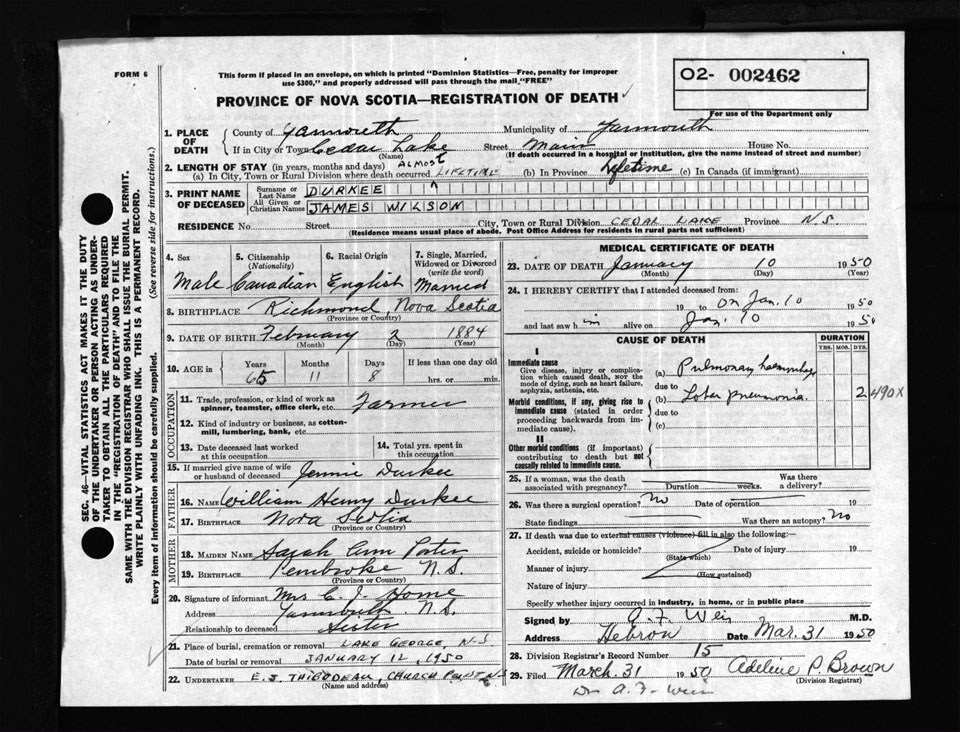 FORM 6
This form if placed in an envelope, on which is printed "Dominion Statistics—Free, penalty for improper
use $300," and properly addressed will pass through the mail, "FREE"
O2- 002462
For use of the Department only
PROVINCE OF NOVA SCOTIA—REGISTRATION OF DEATH ✓
1. PLACE OF DEATH
County of Yarmouth Municipality of Yarmouth
If in City or Town Cedar Lake Street Main House No.
(Name) (If death occurred in a hospital or institution, give the name instead of street and number)
2. LENGTH OF STAY (in years, months and days) ALMOST
(a) In City, Town or Rural Division where death occurred LIFETIME (b) In Province Lifetime (c) In Canada (if immigrant)
3. PRINT NAME OF DECEASED
Surname or Last Name DURKEE
All Given or Christian Names JAMES WILSON
RESIDENCE No. Street City, Town or Rural Division CEDAR LAKE Province N.S.
(Residence means usual place of abode. Post Office Address for residents in rural parts not sufficient)
4. Sex 5. Citizenship (Nationality) 6. Racial Origin 7. Single, Married, Widowed or Divorced (write the word)
Male Canadian English Married
8. BIRTHPLACE Richmond, Nova Scotia
(Province or Country)
9. DATE OF BIRTH February 2 1884
(Month) (Day) (Year)
10. AGE in Years Months Days If less than one day old
65 11 8 hrs. or min.
OCCUPATION
11. Trade, profession, or kind of work as
spinner, teamster, office clerk, etc. Farmer
12. Kind of industry or business, as cotton-
mill, lumbering, bank, etc.
13. Date deceased last worked
at this occupation
14. Total yrs. spent in
this occupation
15. If married give name of wife
or husband of deceased Jennie Durkee
FATHER
16. NAME William Henry Durkee
17. BIRTHPLACE Nova Scotia
(Province or Country)
MOTHER
18. MAIDEN NAME Sarah Ann Porter
19. BIRTHPLACE Pembroke N.S.
(Province or Country)
20. Signature of informant Mrs C. J. Horne
Address Yarmouth N.S.
Relationship to deceased Sister
21. Place of burial, cremation or removal LAKE GEORGE, N-S
Date of burial or removal JANUARY 12, 1950
22. UNDERTAKER E. J. THIBODEAU, CHURCH POINT N-S
(Name and address)
MEDICAL CERTIFICATE OF DEATH
23. DATE OF DEATH January 10 1950
(Month) (Day) (Year)
24. I HEREBY CERTIFY that I attended deceased from:
19 to on Jan. 10 1950
and last saw him alive on Jan. 10 1950
CAUSE OF DEATH
DURATION
YRS. MOS. DYS.
I
Immediate cause
Give disease, injury or complica-
tion which caused death, NOT the
mode of dying, such as heart failure,
asphyxia, asthenia, etc.
(a) Pulmonary haemorrhage
due to
Morbid conditions, if any, giving rise to
immediate cause (stated in order
proceeding backwards from im-
mediate cause).
(b) Lobar pneumonia. 2 490X
due to
(c)
II
Other morbid conditions (if important)
contributing to death but not
causally related to immediate cause.
25. If a woman, was the death
associated with pregnancy? Duration weeks. Was there
a delivery?
26. Was there a surgical operation? No Date of operation 19
State findings Was there an autopsy? No
27. If death was due to external causes (violence) fill in also the following:—
Accident, suicide or homicide? Date of injury 19
(State which)
Manner of injury
(How sustained)
Nature of injury
Specify whether injury occurred in industry, in home, or in public place
Signed by A. F. Weir M.D.
Address Hebron Date Mar. 31 1950
28. Division Registrar's Record Number 15
29. Filed March 31 1950 Adeline P. Brown
(Division Registrar)
Dr. A. F. Weir
SEC. 46—VITAL STATISTICS ACT MAKES IT THE DUTY
OF THE UNDERTAKER OR PERSON ACTING AS UNDER-
TAKER TO OBTAIN ALL THE PARTICULARS REQUIRED
IN THE "REGISTRATION OF DEATH" AND TO FILE THE
SAME WITH THE DIVISION REGISTRAR WHO SHALL ISSUE THE BURIAL PERMIT.
WRITE PLAINLY WITH UNFADING INK. THIS IS A PERMANENT RECORD.
Every item of information should be carefully supplied. (See reverse side for instructions.)